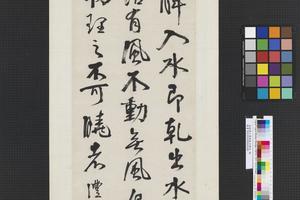 脾入水即乾出水
活有風不動無風自
物理之不可曉者